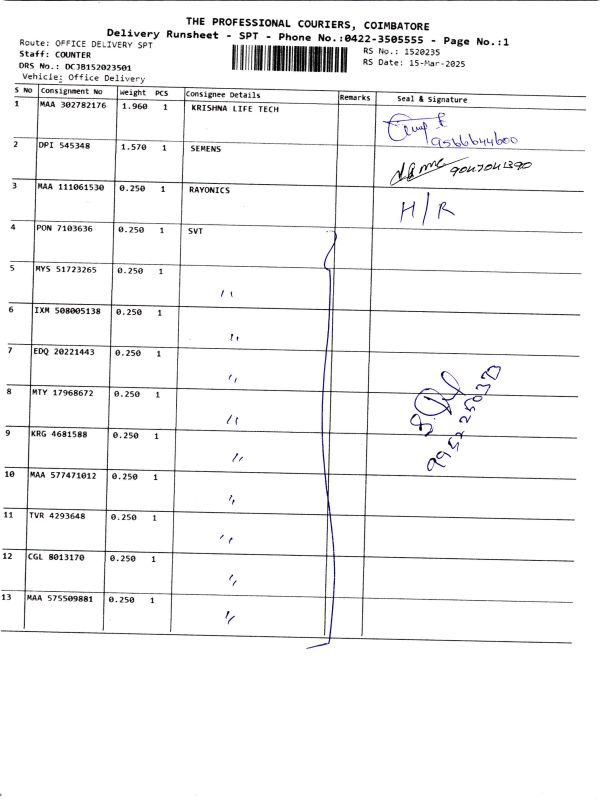 THE PROFESSIONAL COURIERS, COIMBATORE
Delivery Runsheet - SPT - Phone No.:0422-3505555 - Page No.:1
Route: OFFICE DELIVERY SPT
Staff: COUNTER
DRS No.: DCJB152023501
Vehicle: Office Delivery
RS No.: 1520235
RS Date: 15-Mar-2025
S No Consignment No Weight PCS Consignee Details Remarks Seal & Signature
1 MAA 302782176 1.960 1 KRISHNA LIFE TECH
9566644600
2 DPI 545348 1.570 1 SEMENS
9047041390
3 MAA 111061530 0.250 1 RAYONICS H/R
4 PON 7103636 0.250 1 SVT
5 MYS 51723265 0.250 1 ''
6 IXM 508005138 0.250 1 ''
7 EDQ 20221443 0.250 1 ''
8 MTY 17968672 0.250 1 ''
9 KRG 4681588 0.250 1 ''
10 MAA 577471012 0.250 1 ''
11 TVR 4293648 0.250 1 ''
12 CGL 8013170 0.250 1 ''
13 MAA 575509881 0.250 1 ''